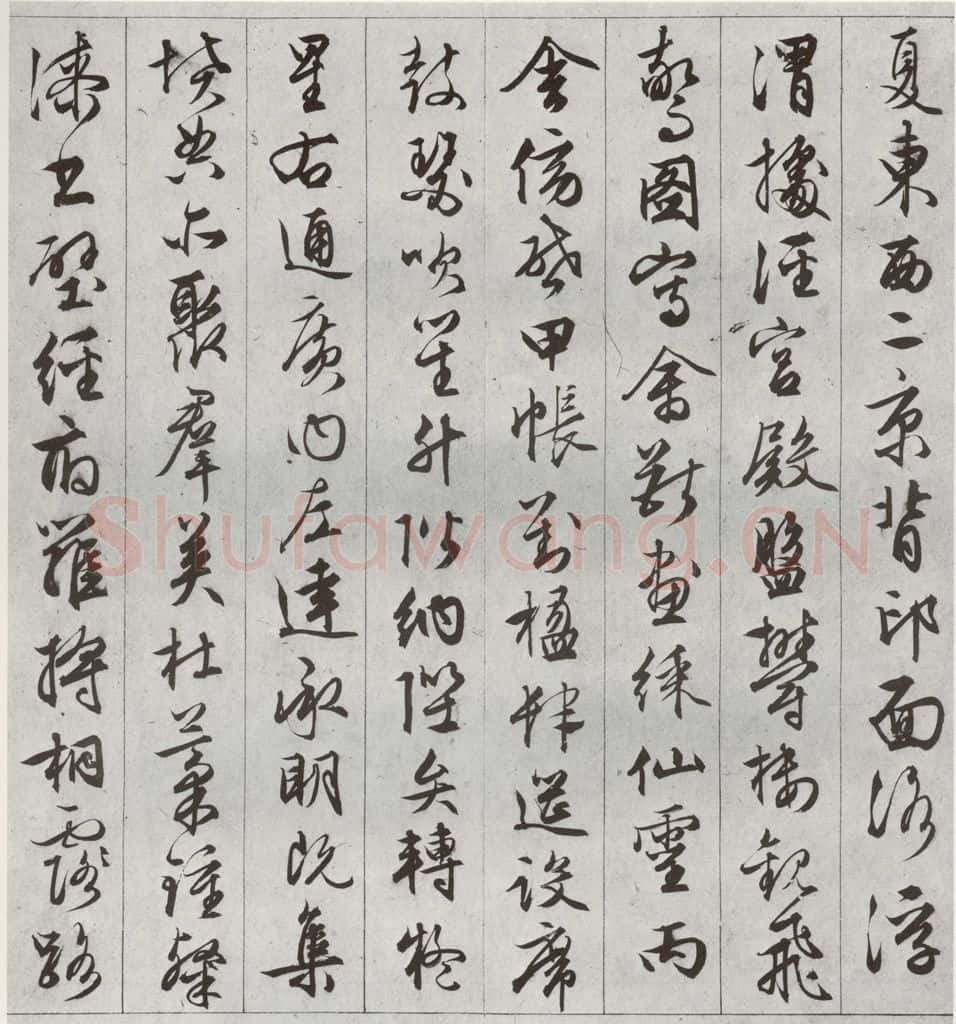 夏東西二京背邙面洛浮
渭據涇宮殿盤鬱樓觀飛
驚圖寫禽獸畫綵仙靈丙
舍傍啓甲帳對楹肆筵設席
鼓瑟吹笙升階納陛弁轉疑
星右通廣內左達承明既集
墳典亦聚羣英杜稾鍾隸
漆書壁經府羅將相露路
Shufawang.CN